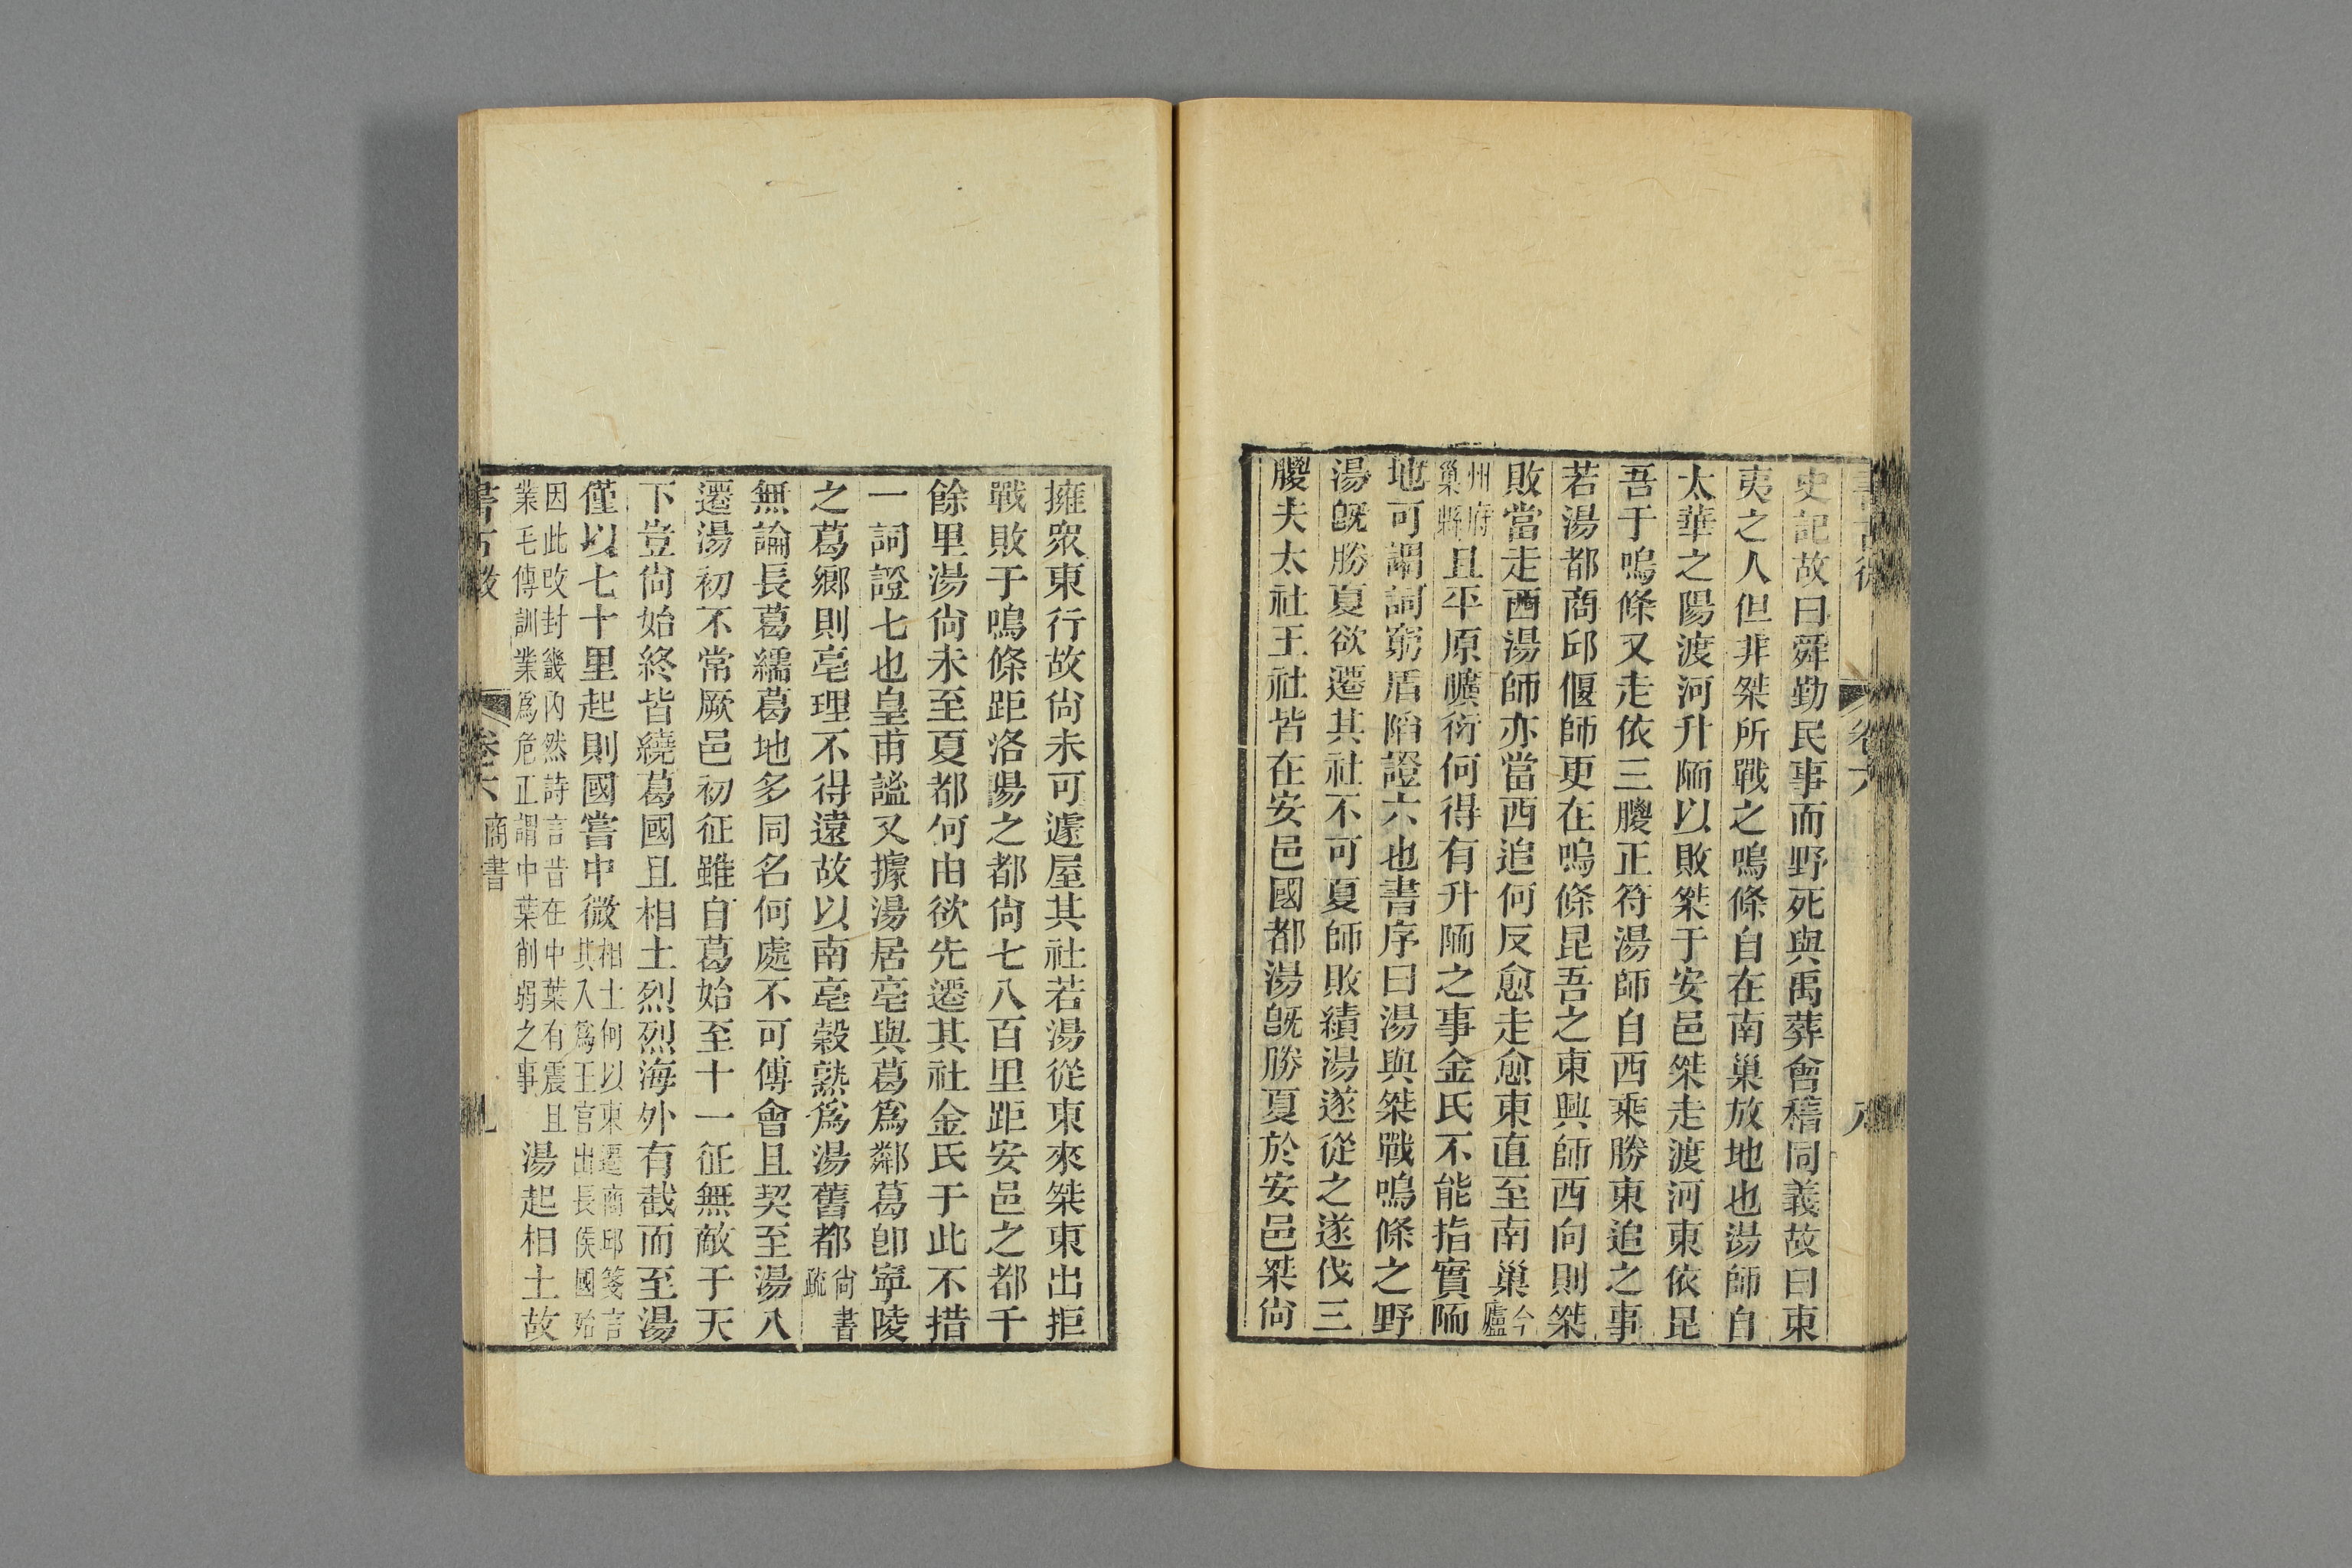 書古微
卷六
史記故曰舜勤民事而野死與禹葬會稽同義故曰東
夷之人但非桀所戰之鳴條自在南巢放地也湯師自
太華之陽渡河升陑以敗桀于安邑桀走渡河東依昆
吾于鳴條又走依三朡正符湯師自西乘勝東追之事
若湯都商邱偃師更在鳴條昆吾之東興師西向則桀
敗當走西湯師亦當西追何反愈走愈東直至南巢今廬
州府巢縣且平原曠衍何得有升陑之事金氏不能指實陑
地可謂詞窮盾陷證六也書序曰湯與桀戰鳴條之野
湯旣勝夏欲遷其社不可夏師敗績湯遂從之遂伐三
朡夫太社王社皆在安邑國都湯旣勝夏於安邑桀尙
擁眾東行故尙未可遽屋其社若湯從東來桀東出拒
戰敗于鳴條距洛陽之都尙七八百里距安邑之都千
餘里湯尙未至夏都何由欲先遷其社金氏于此不措
一詞證七也皇甫謐又據湯居亳與葛爲鄰葛卽寧陵
之葛鄉則亳理不得遠故以南亳穀熟爲湯舊都尙書疏
無論長葛繻葛地多同名何處不可傅會且契至湯八
遷湯初不常厥邑初征雖自葛始至十一征無敵于天
下豈尙始終皆繞葛國且相土烈烈海外有截而至湯
僅以七十里起則國嘗中微相土何以東遷商邱箋言其入爲王官出長侯國殆
因此改封畿內然詩言昔在中葉有震且業毛傳訓業爲危正謂中葉削弱之事湯起相土故
書古微
卷六 商書
九